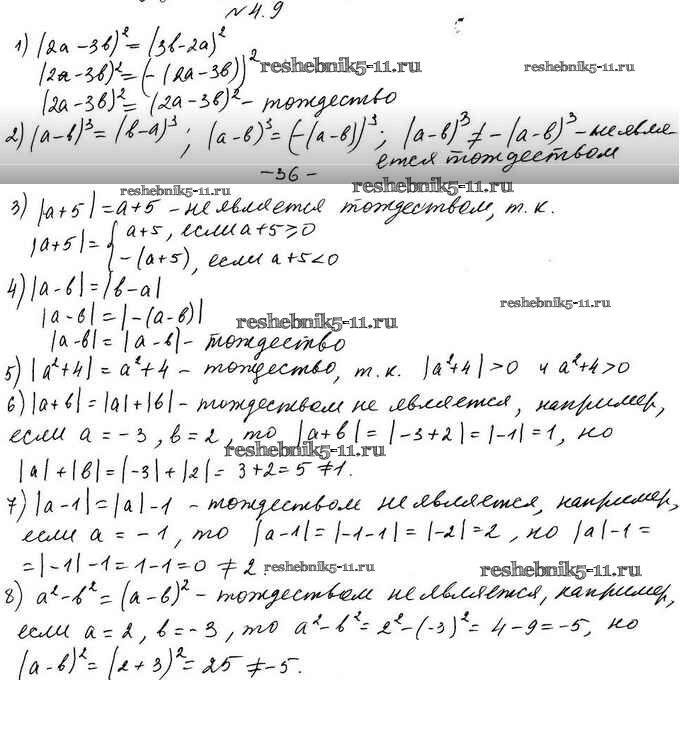 № 4.9
1) (2a-3b)² = (3b-2a)²
(2a-3b)² = (-(2a-3b))²
reshebnik5-11.ru
reshebnik5-11.ru
(2a-3b)² = (2a-3b)² - тождество
2) (a-b)³ = (b-a)³; (a-b)³ = (-(a-b))³; (a-b)³ ≠ -(a-b)³ - не явля
ется тождеством
-36-
reshebnik5-11.ru
3) |a+5| = a+5 - не является тождеством, т.к.
|a+5| = { a+5, если a+5≥0
-(a+5), если a+5<0
4) |a-b| = |b-a|
reshebnik5-11.ru
|a-b| = |-(a-b)|
reshebnik5-11.ru
|a-b| = |a-b| - тождество
5) |a²+4| = a²+4 - тождество, т.к. |a²+4| >0 и a²+4>0
6) |a+b| = |a|+|b| - тождеством не является, например,
если a = -3, b = 2, то |a+b| = |-3+2| = |-1| = 1, но
reshebnik5-11.ru
|a|+|b| = |-3|+|2| = 3+2 = 5 ≠ 1.
7) |a-1| = |a|-1 - тождеством не является, например,
если a = -1, то |a-1| = |-1-1| = |-2| = 2, но |a|-1 =
= |-1|-1 = 1-1 = 0 ≠ 2.
reshebnik5-11.ru
reshebnik5-11.ru
8) a²-b² = (a-b)² - тождеством не является, например,
если a = 2, b = -3, то a²-b² = 2²-(-3)² = 4-9 = -5, но
(a-b)² = (2+3)² = 25 ≠ -5.
reshebnik5-11.ru